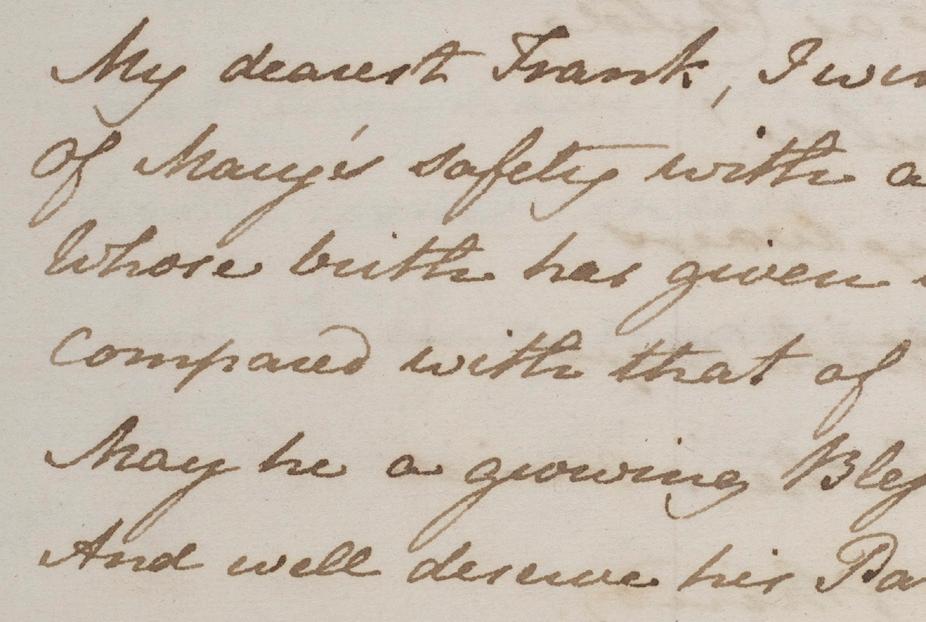 My dearest Frank, I wi
Of Mary's safety with a
Whose birth has given
Compared with that of
May he a growing Bles
And well deserve his Pa